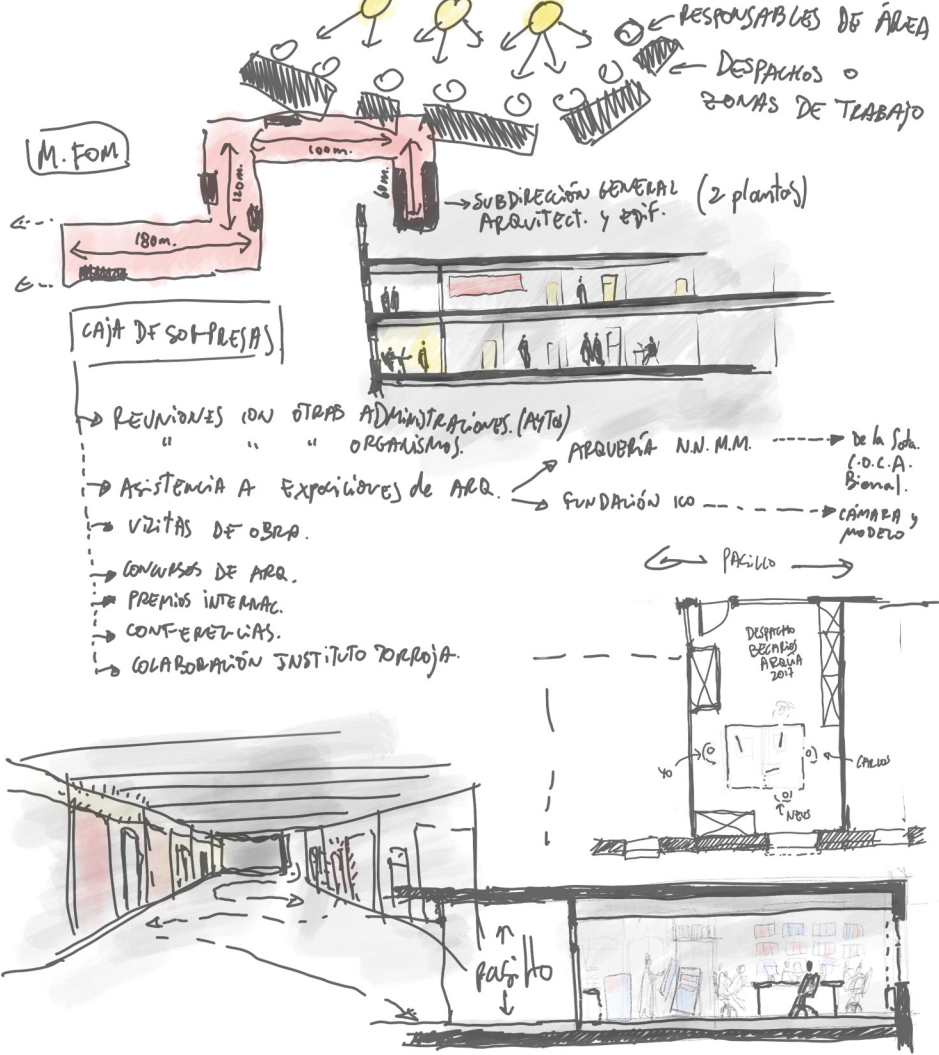 RESPONSABLES DE ÁREA
DESPACHOS O
ZONAS DE TRABAJO
M. FOM
100m.
120m.
60m.
180m.
SUBDIRECCIÓN GENERAL
ARQUITECT. y EDIF.
(2 plantas)
CAJA DE SORPRESAS
REUNIONES CON OTRAS ADMINISTRACIONES. (AYTO)
" " " ORGANISMOS.
ASISTENCIA A EXPOSICIONES de ARQ.
ARQUERÍA N.N.M.M.
De la Sota.
C.O.C.A.
Bienal.
FUNDACIÓN ICO
CÁMARA y
MODELO
VISITAS DE OBRA.
CONCURSOS DE ARQ.
PREMIOS INTERNAC.
CONFERENCIAS.
COLABORACIÓN INSTITUTO TORROJA.
PASILLO
DESPACHO
BECARIOS
ARQUIA
2017
YO
CARLOS
NEUS
pasillo